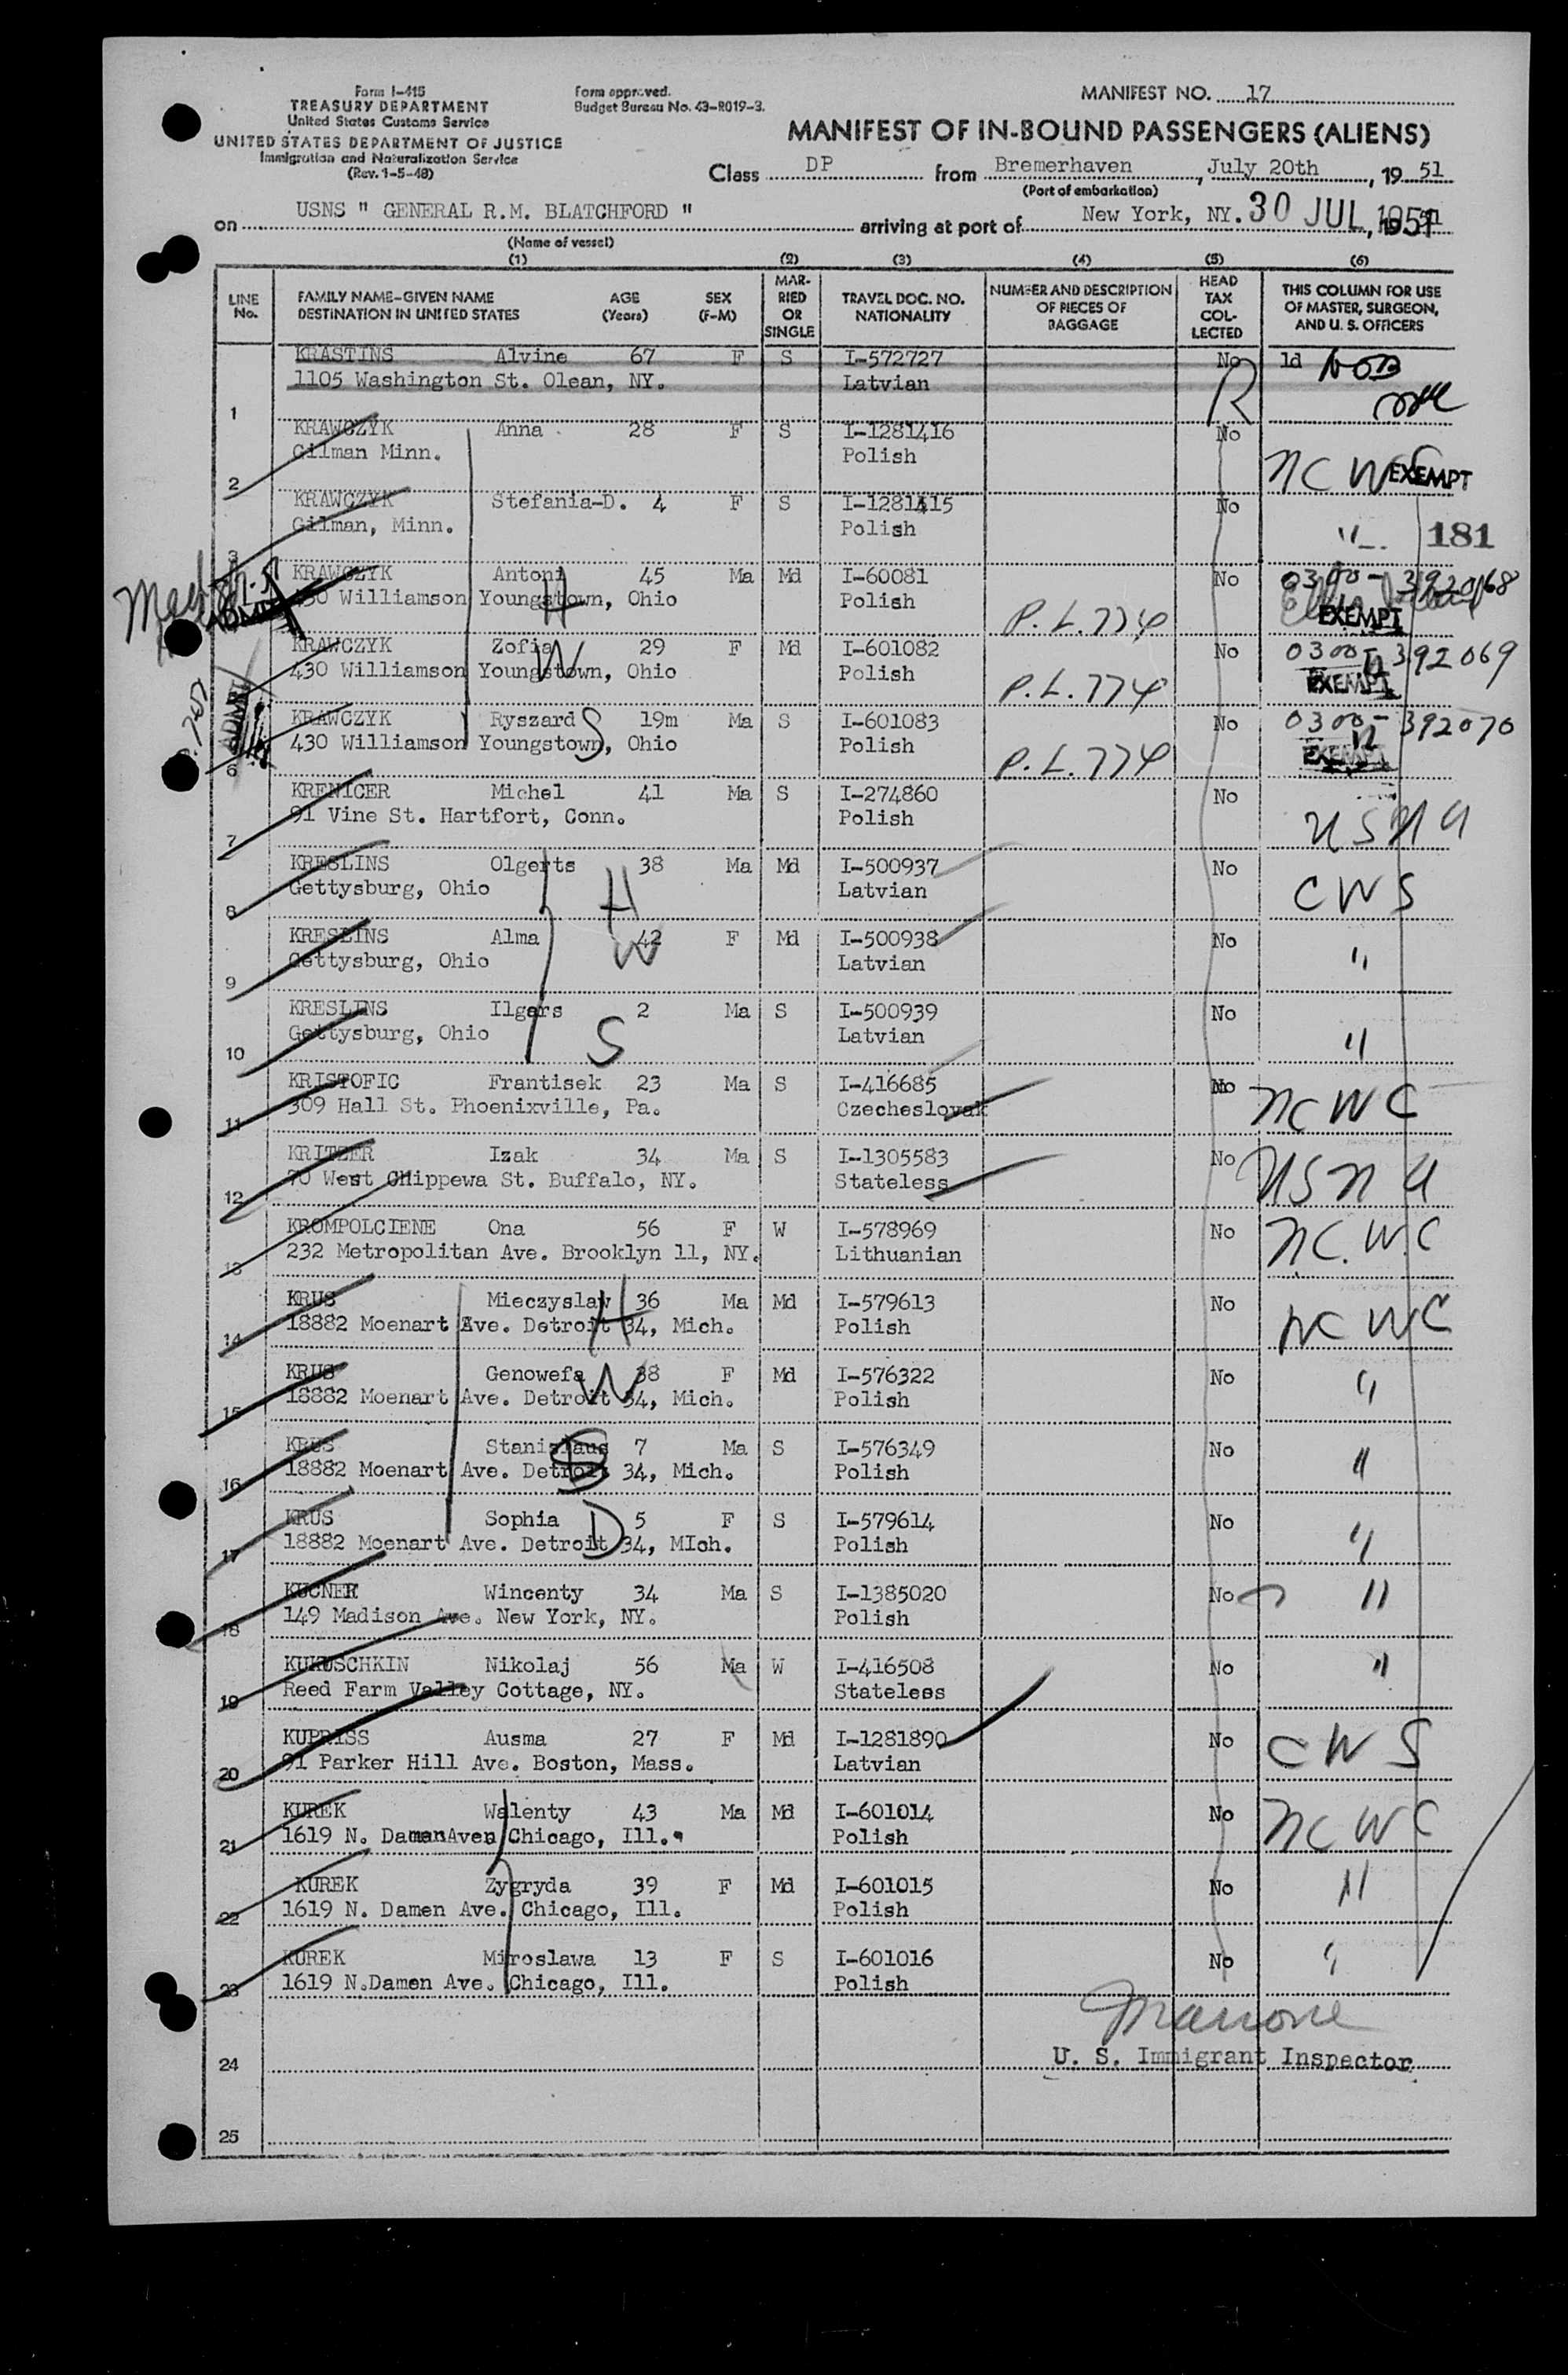 Form I-415
TREASURY DEPARTMENT
United States Customs Service
UNITED STATES DEPARTMENT OF JUSTICE
Immigration and Naturalization Service
(Rev. 1-5-48)
Form approved.
Budget Bureau No. 43-R019-3.
MANIFEST NO. 17
MANIFEST OF IN-BOUND PASSENGERS (ALIENS)
Class DP from Bremerhaven, July 20th, 19 51
(Port of embarkation)
on USNS " GENERAL R.M. BLATCHFORD " arriving at port of New York, NY. 30 JUL 1951
(Name of vessel)
(1) (2) (3) (4) (5) (6)
LINE No. FAMILY NAME-GIVEN NAME DESTINATION IN UNITED STATES AGE (Years) SEX (F-M) MARRIED OR SINGLE TRAVEL DOC. NO. NATIONALITY NUMBER AND DESCRIPTION OF PIECES OF BAGGAGE HEAD TAX COLLECTED THIS COLUMN FOR USE OF MASTER, SURGEON, AND U. S. OFFICERS
KRASTINS Alvine 67 F S I-572727 No 1d NOB
1105 Washington St. Olean, NY. Latvian
1
KRAWCZYK Anna 28 F S I-1281416 No
Gilman Minn. Polish
2 NCWC EXEMPT
KRAWCZYK Stefania-D. 4 F S I-1281415 No
Gilman, Minn. Polish " 181
3
KRAWCZYK Antoni 45 Ma Md I-60081 No 0300-392068
430 Williamson Youngstown, Ohio H Polish P.L.774 EXEMPT
KRAWCZYK Zofia 29 F Md I-601082 No 0300-392069
430 Williamson Youngstown, Ohio W Polish P.L.774 EXEMPT
KRAWCZYK Ryszard 19m Ma S I-601083 No 0300-392070
430 Williamson Youngstown, Ohio S Polish P.L.774 EXEMPT
6
KRENICER Michel 41 Ma S I-274860 No
91 Vine St. Hartfort, Conn. Polish USNA
7
KRESLINS Olgerts 38 Ma Md I-500937 No
Gettysburg, Ohio H Latvian CWS
8
KRESLINS Alma 42 F Md I-500938 No
Gettysburg, Ohio W Latvian "
9
KRESLINS Ilgars 2 Ma S I-500939 No
Gettysburg, Ohio S Latvian "
10
KRISTOFIC Frantisek 23 Ma S I-416685 No NCWC
309 Hall St. Phoenixville, Pa. Czecheslovak
11
KRITZER Izak 34 Ma S I-1305583 No USNA
70 West CHippewa St. Buffalo, NY. Stateless
12
KROMPOLCIENE Ona 56 F W I-578969 No N.C.W.C
232 Metropolitan Ave. Brooklyn 11, NY. Lithuanian
13
KRUS Mieczyslaw 36 Ma Md I-579613 No
18882 Moenart Ave. Detroit 34, Mich. H Polish NCWC
14
KRUS Genowefa 38 F Md I-576322 No
18882 Moenart Ave. Detroit 34, Mich. W Polish "
15
KRUS Stanislaus 7 Ma S I-576349 No
18882 Moenart Ave. Detroit 34, Mich. S Polish "
16
KRUS Sophia 5 F S I-579614 No
18882 Moenart Ave. Detroit 34, MIch. D Polish "
17
KUCNER Wincenty 34 Ma S I-1385020 No "
149 Madison Ave. New York, NY. Polish
18
KUKUSCHKIN Nikolaj 56 Ma W I-416508 No "
Reed Farm Valley Cottage, NY. Stateless
19
KUPRISS Ausma 27 F Md I-1281890 No CWS
91 Parker Hill Ave. Boston, Mass. Latvian
20
KUREK Walenty 43 Ma Md I-601014 No NCWC
1619 N. DamenAven Chicago, Ill. Polish
21
KUREK Zygryda 39 F Md I-601015 No "
1619 N. Damen Ave. Chicago, Ill. Polish
22
KUREK Miroslawa 13 F S I-601016 No "
1619 N.Damen Ave. Chicago, Ill. Polish
23
Marrone
24 U. S. Immigrant Inspector
25